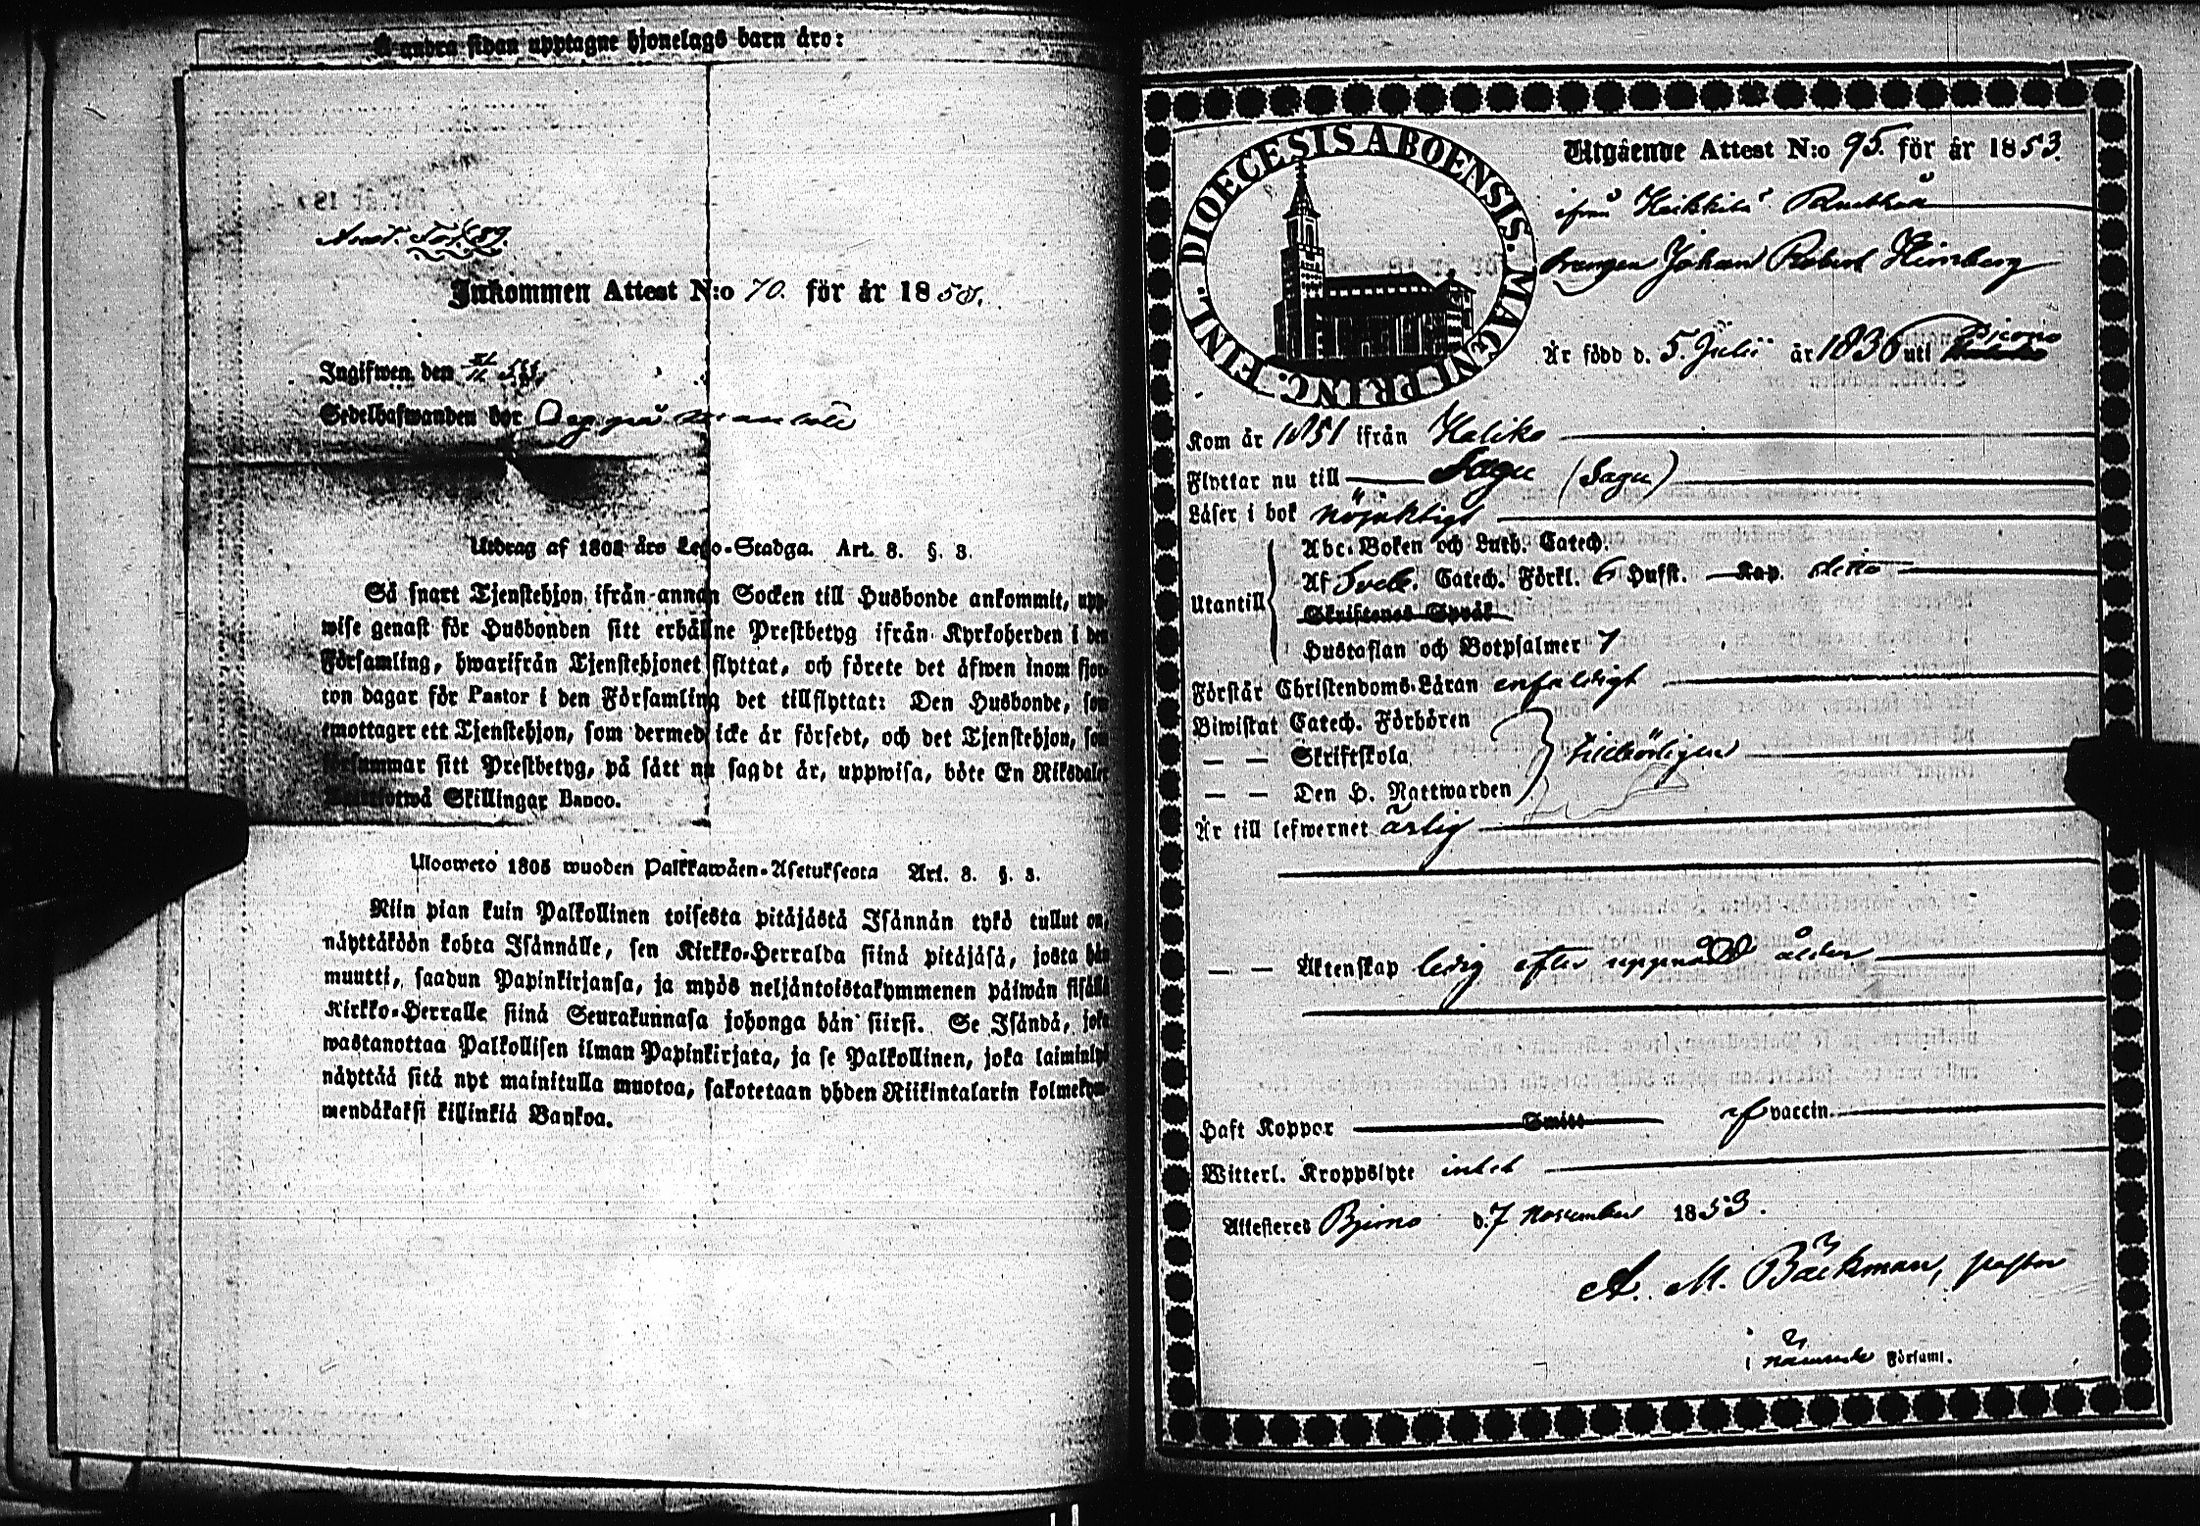 å andra sidan upptagne hjonelags barn äro:
Inkommen Attest N:o 70. för år 185
Ingifwen den
Sedelhafwanden bor
Utdrag af 1805 års Lego-Stadga. Art. 8. §. 3.
Så snart Tjenstehjon ifrån annan Socken till Husbonde ankommit, upp-
wise genast för Husbonden sitt erhållne Prestbetyg ifrån Kyrkoherden i den
Församling, hwarifrån Tjenstehjonet flyttat, och förete det äfwen inom fjor-
ton dagar för Pastor i den Församling det tillflyttat: Den Husbonde, som
emottager ett Tjenstehjon, som dermed icke är försedt, och det Tjenstehjon, som
försummar sitt Prestbetyg, på sätt nu sagdt är, uppwisa, böte En Riksdaler
Skillingar Banco.
Ulosweto 1805 wuoden Palkkawäen-Asetuksesta Art. 8. §. 3.
Niin pian kuin Palkollinen toisesta pitäjästä Isännän tykö tullut on,
näyttäköön kohta Isännälle, sen Kirkko-Herralda siinä pitäjäsä, josta hän
muutti, saadun Papinkirjansa, ja myös neljäntoistakymmenen päiwän sisällä
Kirkko-Herralle siinä Seurakunnasa johonga hän siirsi. Se Isändä, joka
wastanottaa Palkollisen ilman Papinkirjata, ja se Palkollinen, joka laiminlyö
näyttää sitä nyt mainitulla muotoa, sakotetaan yhden Riikintalarin kolmekym-
mendäkaksi killinkiä Bankoa.
DIOECESIS ABOENSIS. MAGNI PRINC. FINL.
Utgående Attest N:o 95. för år 1853.
ifrån Heikkilä
Drengen Johan Robert Himberg
Är född d. 5. Julii år 1836 uti Bjerno
Kom år 1851 ifrån Haliko
Flyttar nu till Sagu (Sagu)
Läser i bok nöjaktigt
Utantill
Abc-Boken och Luth. Catech.
Af Sveb. Catech. Förkl. 6 Hufst. Kap. ditto
Skriftenes Språk
Hustaflan och Botpsalmer 7
Förstår Christendoms-Läran enfaldigt
Biwistat Catech. Förhören
— — Skriftskola tillbörligen
— — Den H. Nattwarden
Är till lefwernet ärlig
— — Äktenskap ledig efter uppnådd ålder
Haft Koppor Smitt af vaccin.
Witterl. Kroppslyte intet
Attesteres Bjerno d. 7 November 1853.
A. M. Bäckman, pastor
i nämnde Församl.